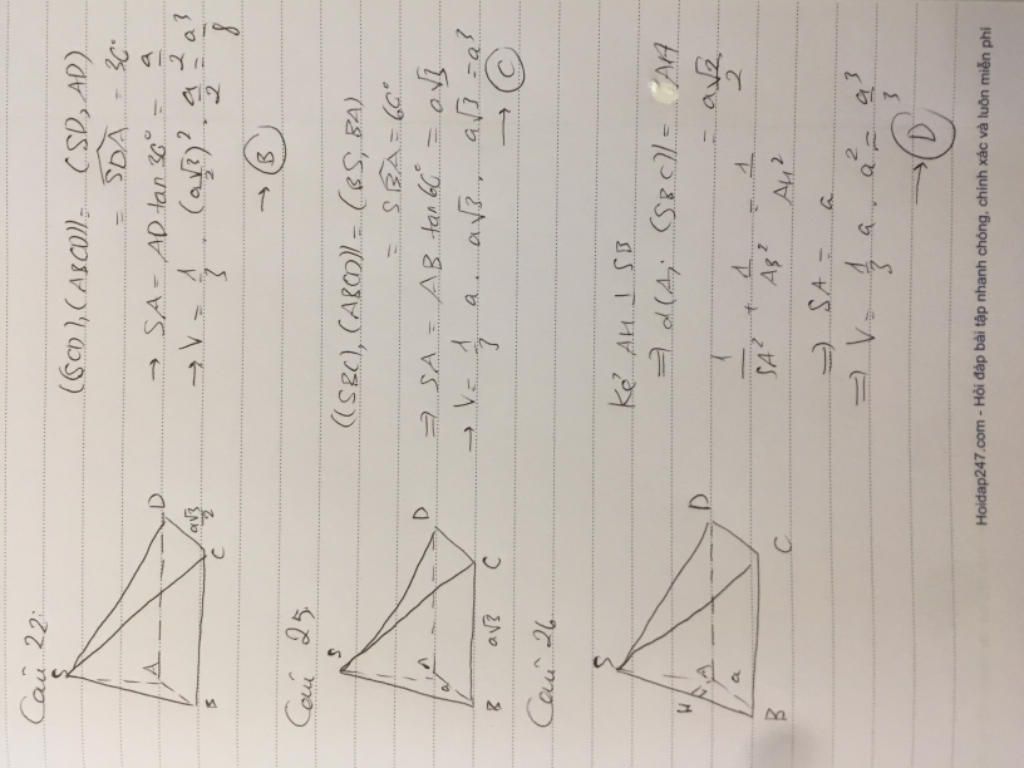 Câu 22:
S
A
B
C
D
a√3/2
((SCD), (ABCD)) = (SD, AD)
= SDA = 30°
→ SA = AD tan30° = a/2
→ V = 1/3 . (a√3/2)² . a/2 = a³/8
→ B
Câu 25:
S
a
A
D
B
a√3
C
((SBC), (ABCD)) = (BS, BA)
= SBA = 60°
⇒ SA = AB . tan60° = a√3
→ V = 1/3 a . a√3 . a√3 = a³
→ C
Câu 26
S
H
A
a
B
C
D
Kẻ AH ⊥ SB
⇒ d(A; (SBC)) = AH
= a√2/2
1/SA² + 1/AB² = 1/AH²
⇒ SA = a
⇒ V = 1/3 a . a² = a³/3
→ D
Hoidap247.com - Hỏi đáp bài tập nhanh chóng, chính xác và luôn miễn phí